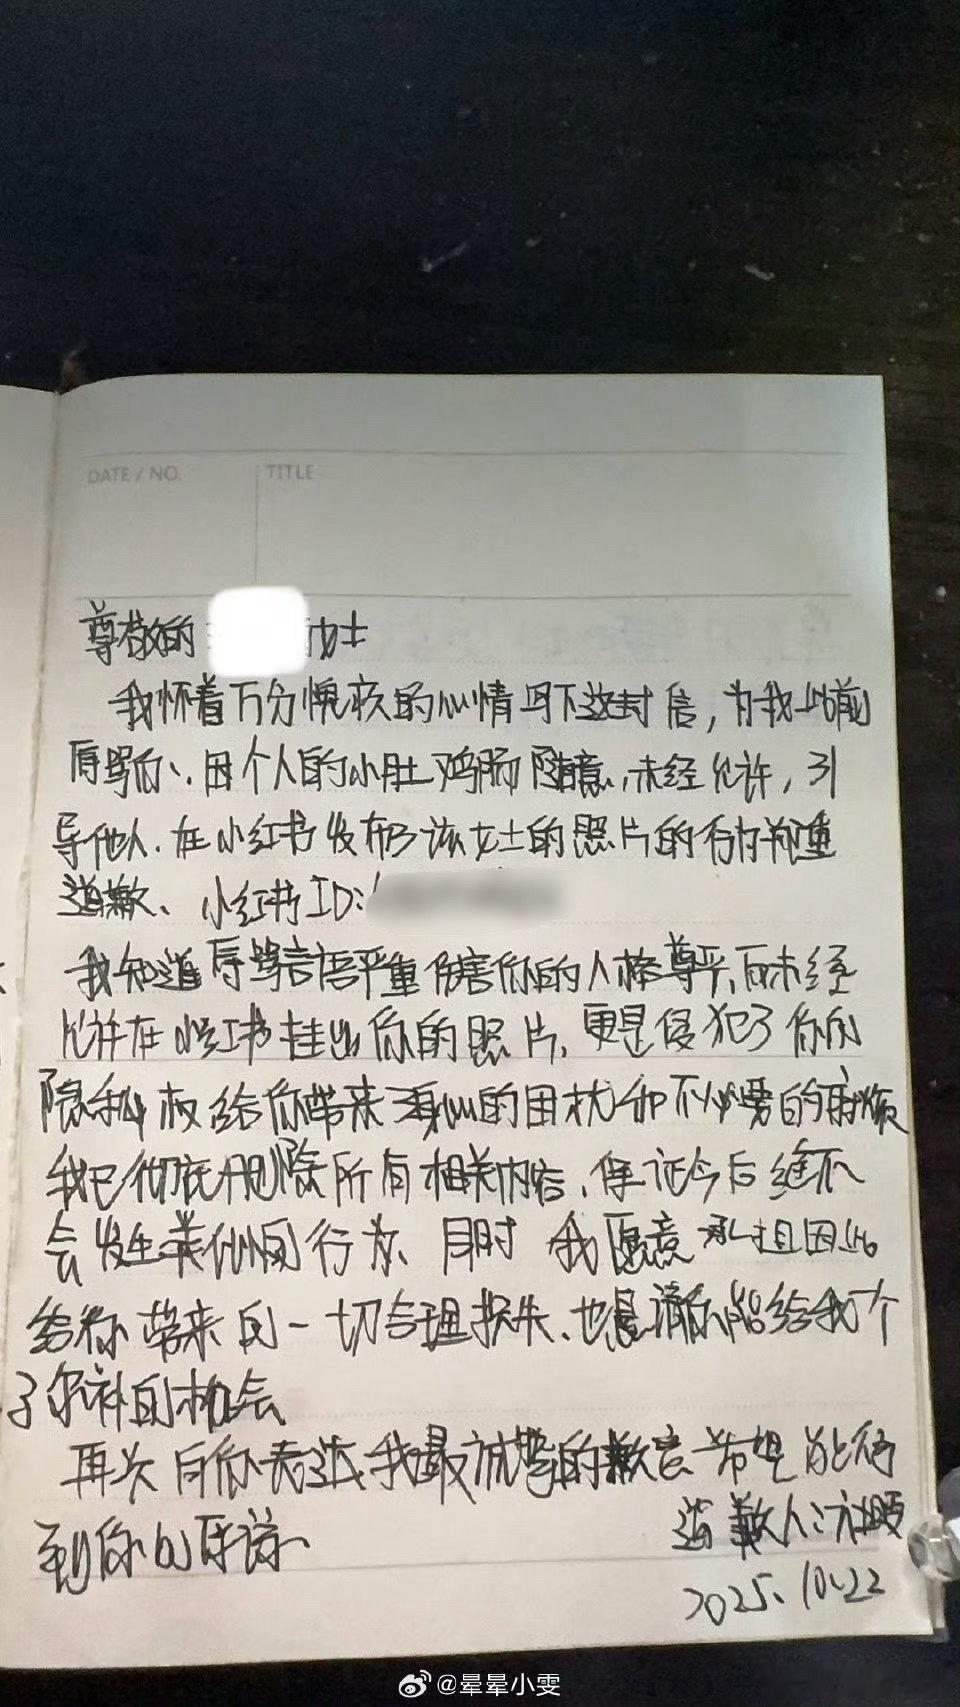 DATE / NO. TITLE
尊敬的 女士
我怀着万分愧疚的心情写下这封信，为我以前
辱骂你、因个人的小肚鸡肠随意，未经允许，引
导他人、在小红书发布了该女士的照片的行为郑重
道歉、小红书ID：
我知道辱骂言语严重伤害你的人格尊严、而未经
允许在小红书挂出你的照片、更是侵犯了你的
隐私权给你带来身心的困扰和不必要的麻烦
我已彻底删除所有相关内容，保证今后绝不
会发生类似的行为、同时我愿意承担因此
给你带来的一切合理损失、也恳请你能给我个
弥补的机会
再次向你表达我最诚挚的歉意希望能得
到你的原谅、
道歉人：
2025.10.22
@晕晕小雯